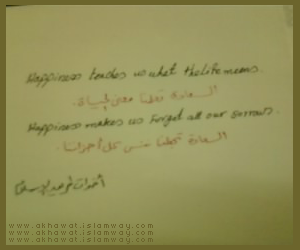 www.akhawat.islamway.com
Happiness teaches us what the life means.
السعادة تعلمنا معنى الحياة.
Happiness makes us forget all our sorrows.
السعادة تجعلنا ننسى كل أحزاننا.
www.akhawat.islamway.com
www.akhawat.islamway.com